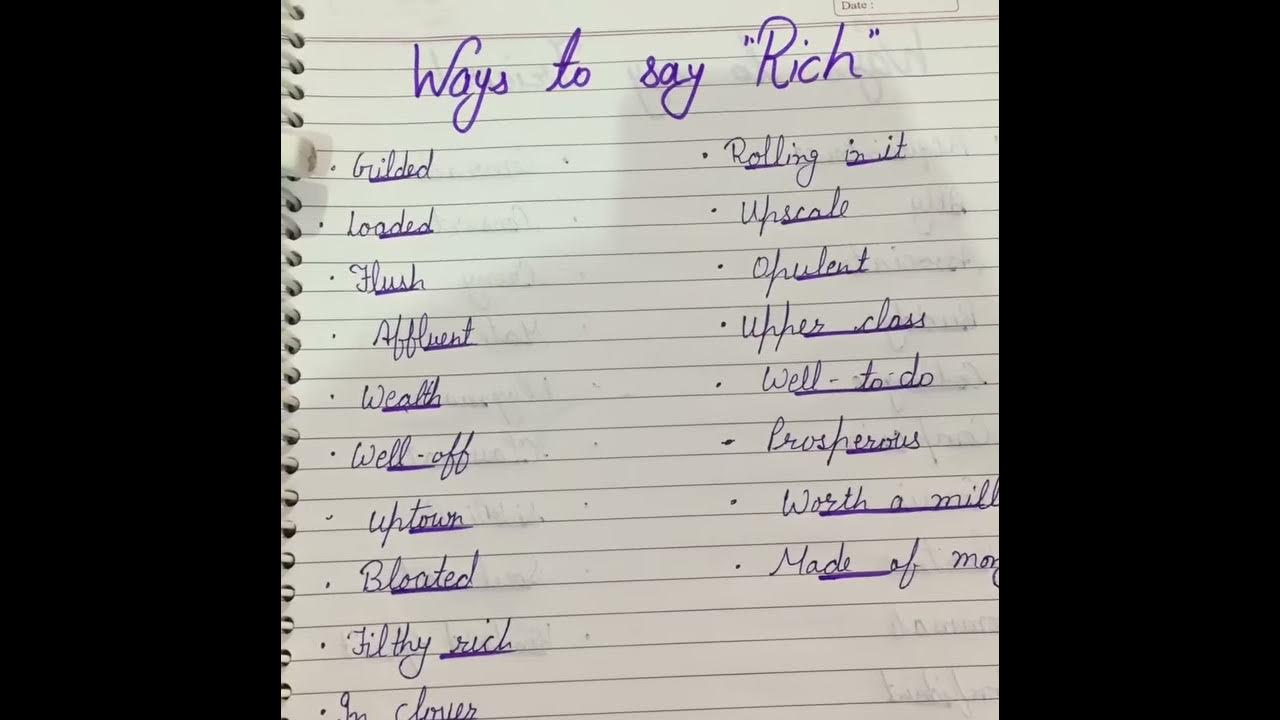 Date :
Ways to say "Rich"
· Gilded
· Loaded
· Flush
· Affluent
· Wealth
· Well-off
· Uptown
· Bloated
· Filthy rich
· In clover
· Rolling in it
· Upscale
· Opulent
· Upper class
· Well-to-do
· Prosperous
· Worth a mill
· Made of mon